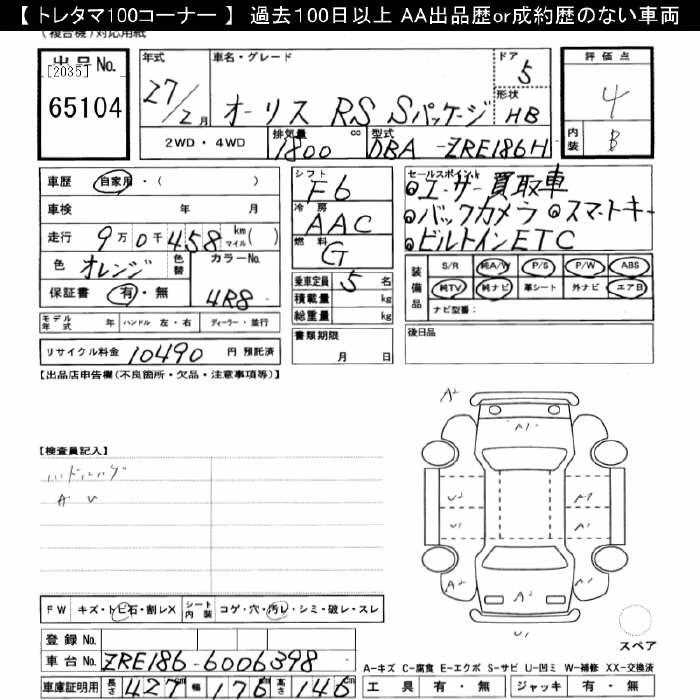 【 トレタマ100コーナー 】 過去100日以上 AA出品歴or成約歴のない車両
(複合機)対応用紙
出品No.
[2035]
65104
年式
27/2月
車名・グレード
オーリス RS Sパッケージ
ドア
5
形状
HB
評価点
4
内装
B
2WD・4WD
排気量
1800 cc
型式
DBA-ZRE186H
車歴 自家用・( )
車検 年 月
走行 9万0千458 km マイル( )
色 オレンジ 色替
カラーNo.
4R8
保証書 有・無
モデル年式 年 ハンドル 左・右 ディーラー・並行
リサイクル料金 10490 円 預託済
シフト
F6
冷房
AAC
燃料
G
乗車定員 5 名
積載量 kg
総重量 kg
書類期限
月 日
セールスポイント
エーサー買取車
バックカメラ スマートキー
ビルトインETC
装備品
S/R 純A/W P/S P/W ABS
純TV 純ナビ 革シート 外ナビ エアB
ナビ型番:
後日品
【出品店申告欄(不良箇所・欠品・注意事項等)】
【検査員記入】
A U
A2
A1
U2 A1
U1 A1
A2 A2 A1
U1
スペア
FW キズ・トビ石・割レX シート内装 コゲ・穴・汚レ・シミ・破レ・スレ
登録No.
車台No. ZRE186-6006398
車庫証明用 長さ 427cm 幅 176cm 高さ 146cm
A-キズ C-腐食 E-エクボ S-サビ U-凹ミ W-補修 XX-交換済
工具 有・無 ジャッキ 有・無